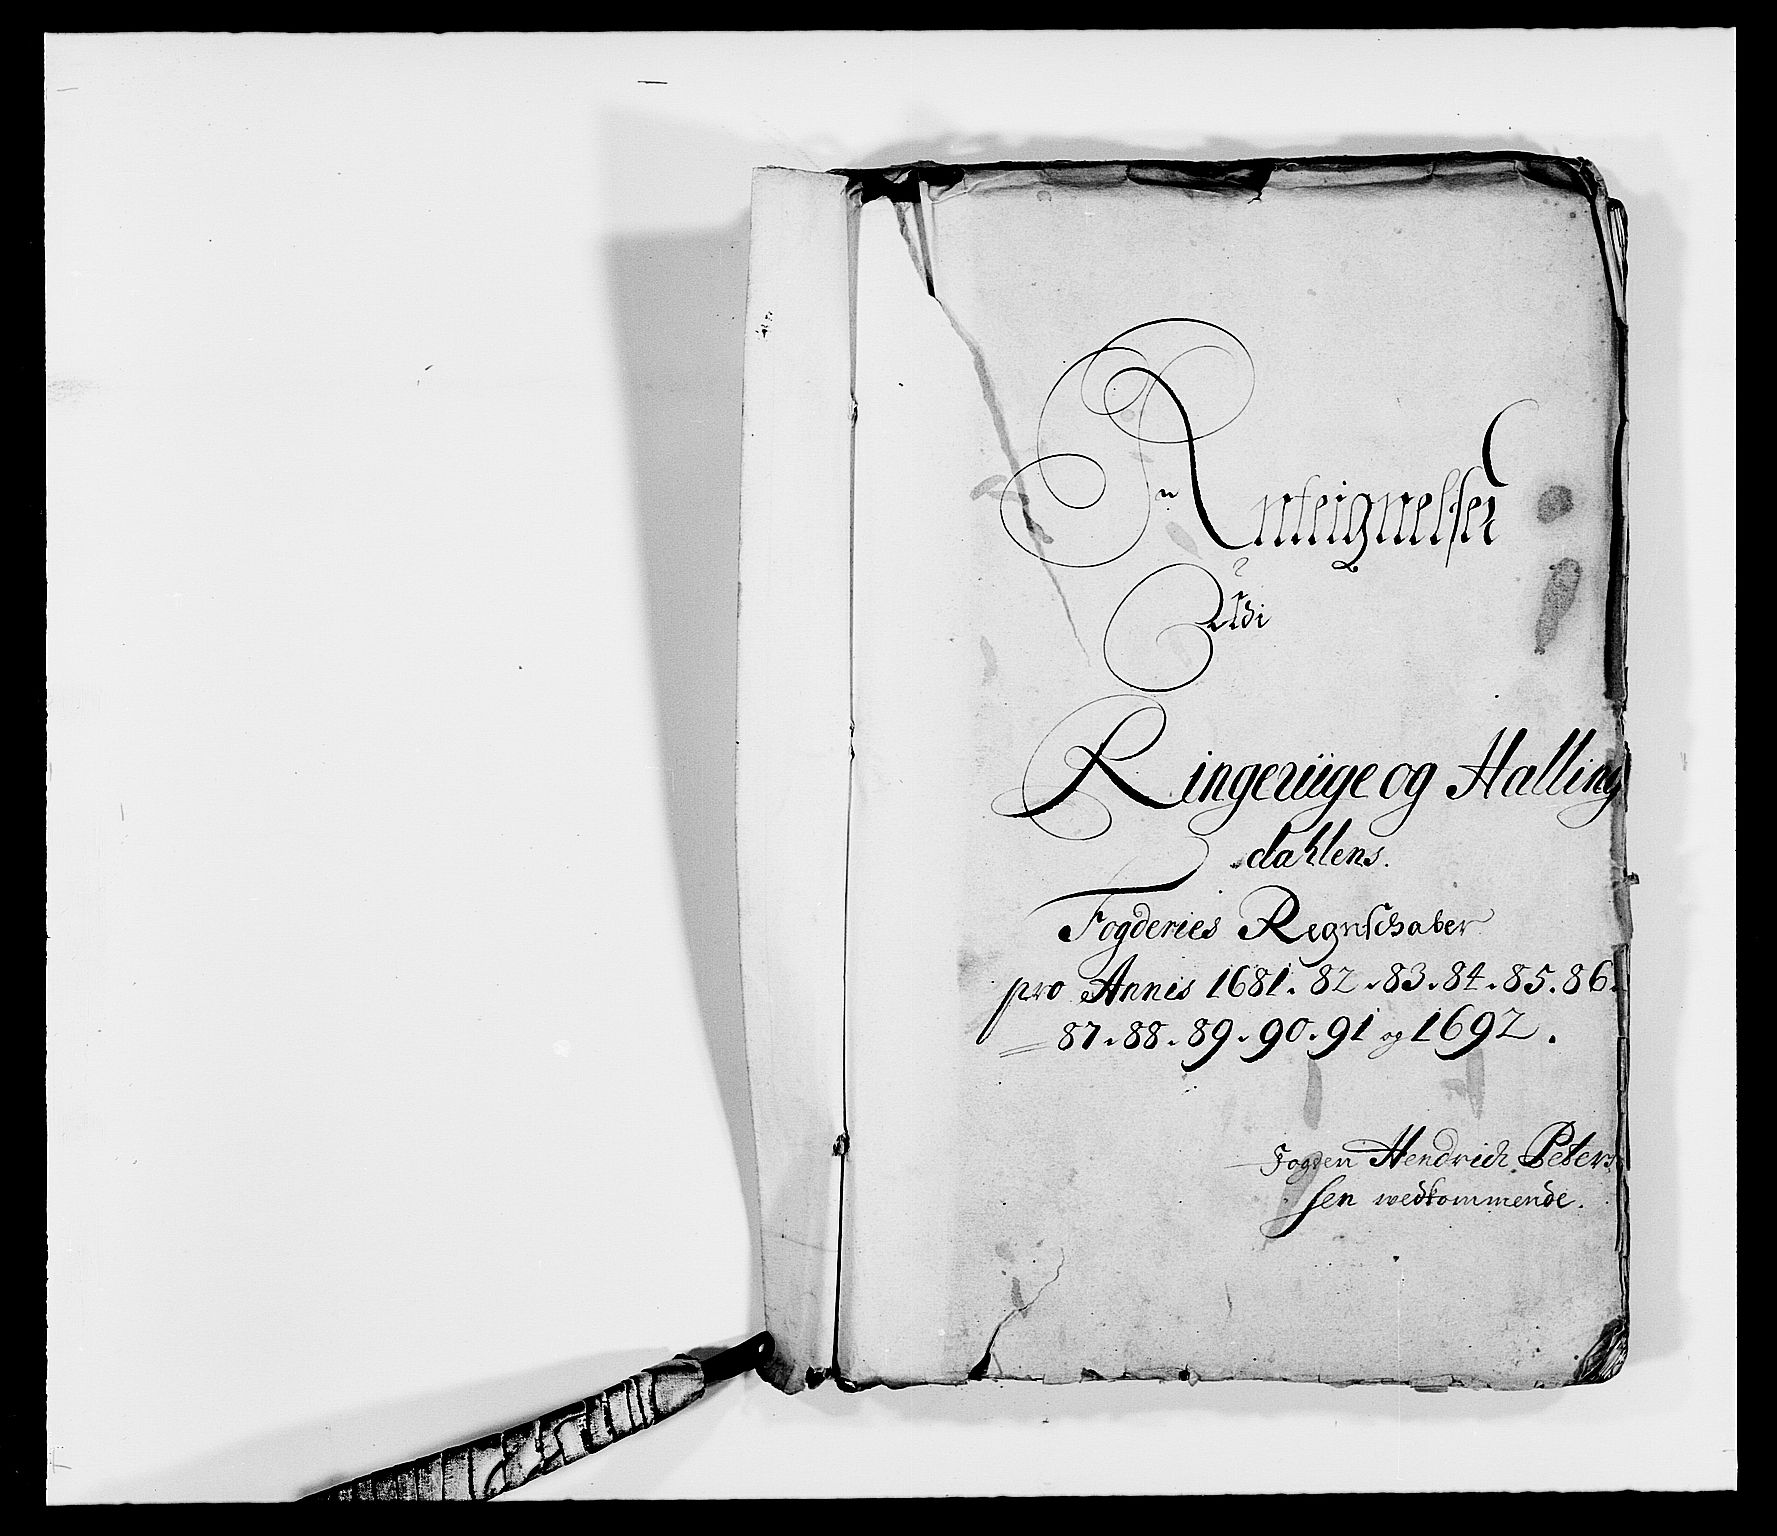 Anteignelser
Udi
Ringeriige og Halling
dahlens.
Fogderies Regnschaber
pro Annis 1681. 82. 83. 84. 85. 86.
87. 88. 89. 90. 91 og 1692.
Fogden Hendrich Peters
sen wedkommende.